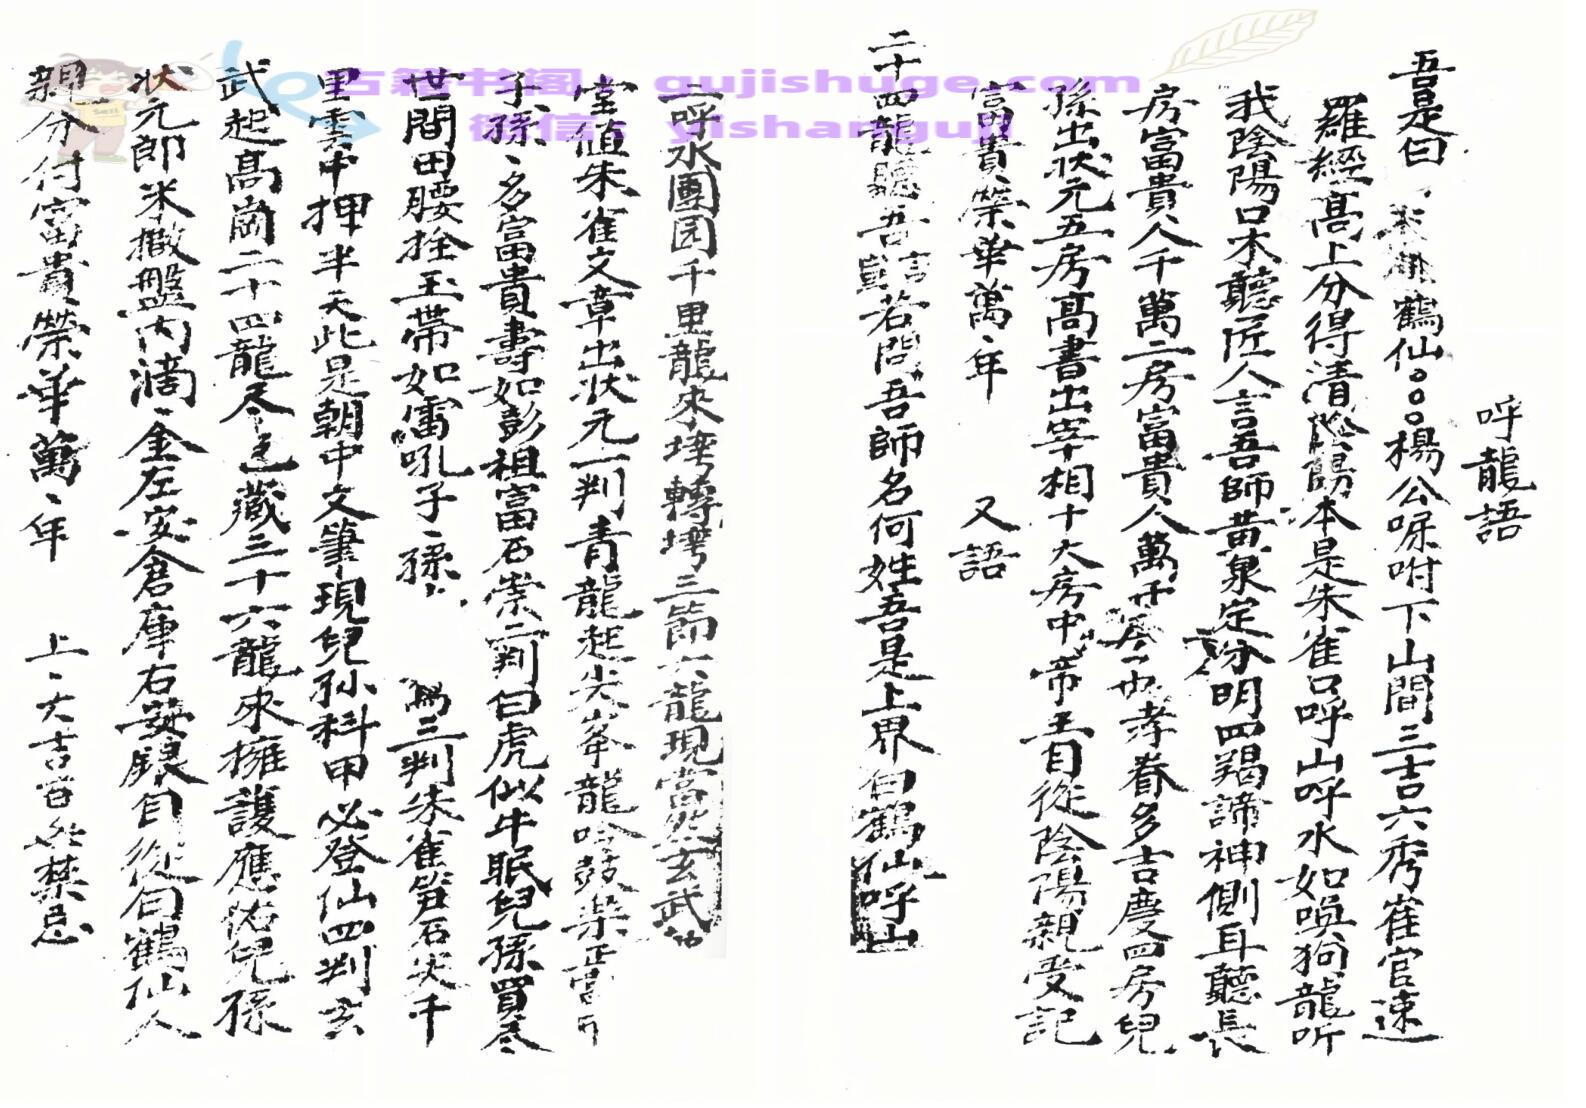 呼龍語
吾是白鶴仙。。。楊公唳咐下山間三吉六秀雀官速
羅經高上分得清陰陽本是朱雀口呼山呼水如喚狗龍听
我陰陽口本聽匠人言吾師黄泉定分明四羯諦神側耳聽長
房富貴人千萬二房富貴人萬千房孝眷多吉慶四房兒
孫出狀元五房高書出宰相十大房中帝王自從陰陽親受記
富貴榮華萬、年
又語
二十四龍聽吾言若問吾師名何姓吾是上界白鶴仙呼山
二呼水團园千里龍來塆轉塆三節六龍現當然玄武
堂值朱雀文章出狀元一判青龍起尖峯龍吟鼓樂正
子孫、多富貴壽如彭祖富石崇二判白虎似牛眠兒孫買尽
世間田腰拴玉带如雷吼子、孫、三判朱雀笋石尖千
里雲中押半天此是朝中文筆現兒孫科甲必登仙四判玄
武起高崗二十四龍尽包藏三十六龍來擁護應佑兒孫
狀元郎米撒盤内滴、金左安倉庫右安銀自從白鶴仙人
親分付富貴榮華萬、年
上、大吉百無禁忌
古籍书阁：gujishuge.com
微信：yishanguji